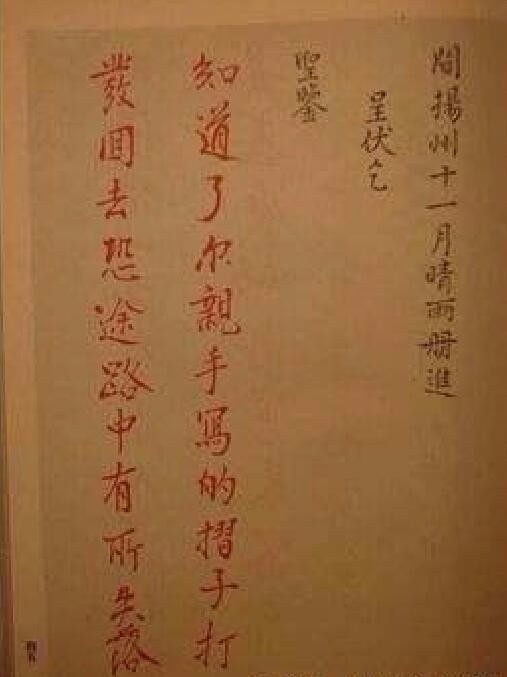 間揚州十一月晴雨册進
呈伏乞
聖鑒
知道了尔親手寫的摺子打
發回去恐途路中有所失落